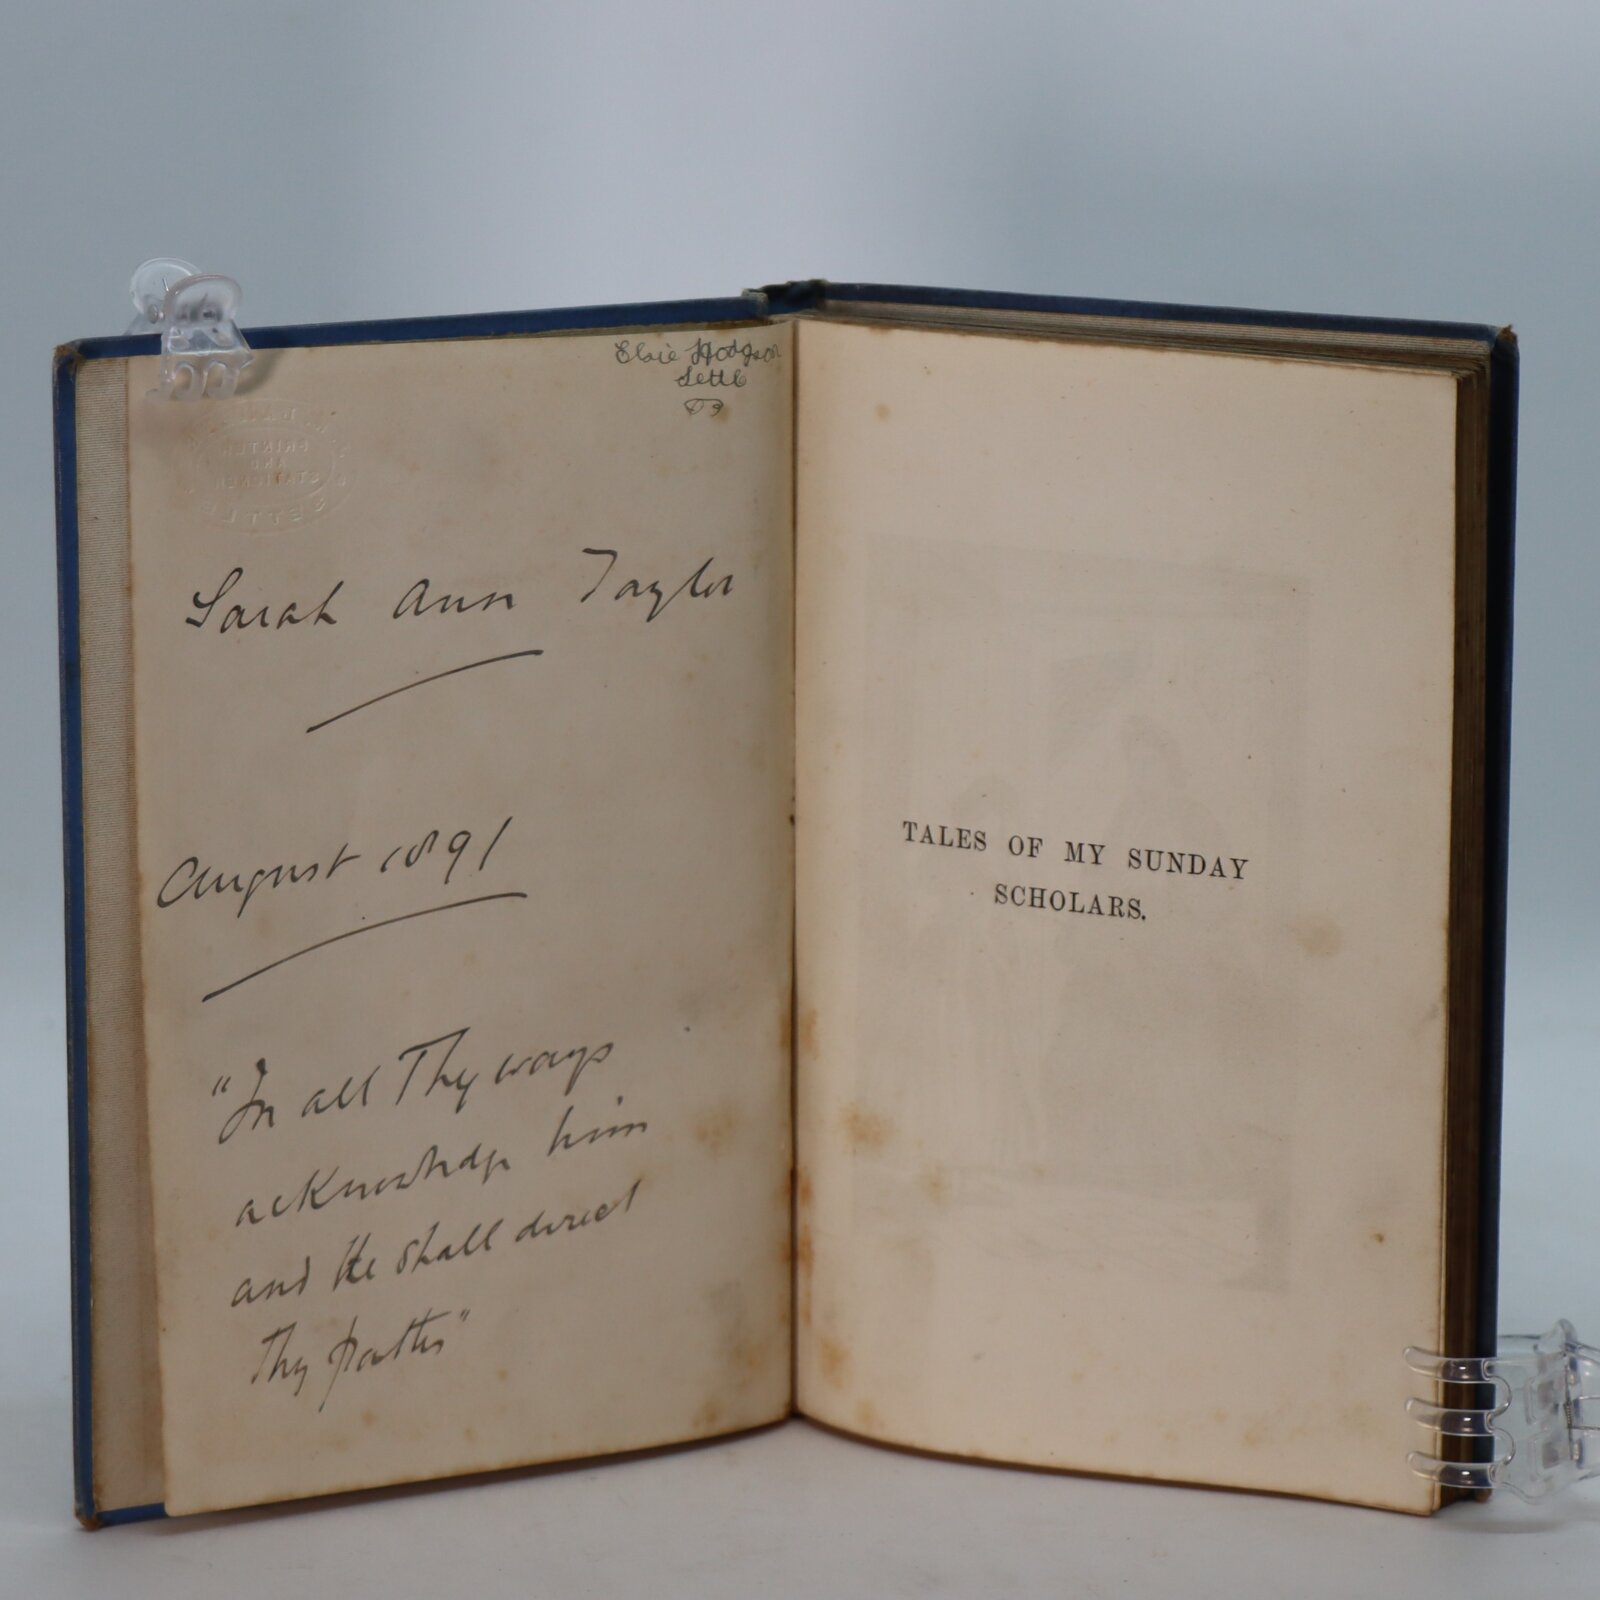 Elsie Hodgson
Settle
PRINTER
AND
STATIONER
SETTLE
Sarah Ann Taylor
August 1891
"In all Thy ways
acknowledge him
and He shall direct
Thy paths"
TALES OF MY SUNDAY
SCHOLARS.